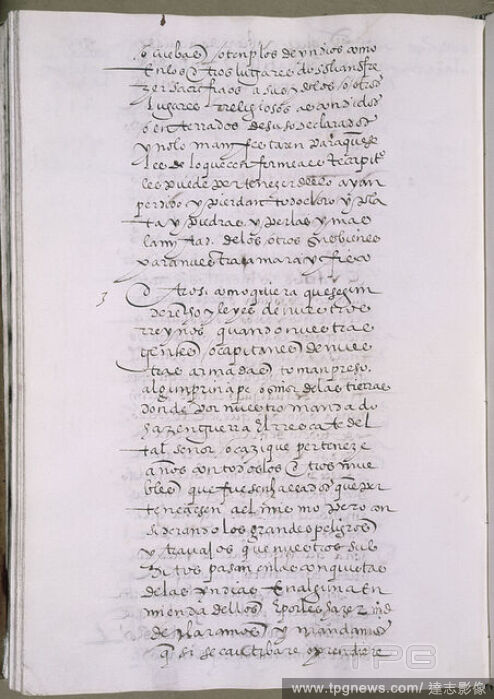 o cuebas o tenplos de yndios como
en los otros lugares do se han ofre
zer sacrifiçios a sus ydolos o otros
lugares rreligiosos ascondidos
o enterrados de suso declarados
y no lo manifestaren para que se
les de lo que conforme a este capit
les puede pertenezer dello ayan
perdido y pierdan todo el oro y pla
ta y piedras y perlas y mas
la mytad de los otros sus bienes
para nuestra camara y fisco
3 Otrosi como quiera que segun
derecho y leyes de nuestros
rreynos quando nuestras
gentes o capitanes de nues
tras armadas toman preso
algun prinçipe o señor de las tierras
donde por nuestro mandado
hazen guerra el rrescate del
tal señor o cazique perteneze
a nos con todos los otros mue
bles que fuesen hallados que per
tenesçiesen a el mismo pero con
siderando los grandes peligros
y travajos que nuestros sub
ditos pasan en las conquistas
de las yndias en alguna en
mienda dellos e por les hazer md
declaramos y mandamos
que si se cautibare o prendiere
TPG
www.tpgnews.com/達志影像